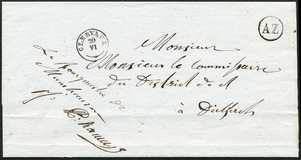 CLERVAUX
20
VI
AZ
Monsieur
Monsieur le Commissaire
du District
à Diekirch
Le bourgmestre de